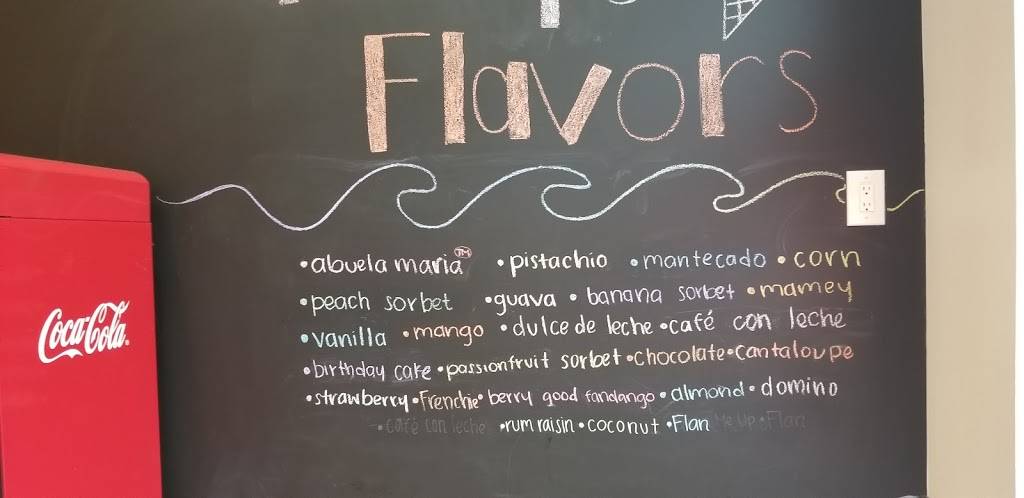 Flavors
•abuela maria™ •pistachio •mantecado •corn
•peach sorbet •guava •banana sorbet •mamey
•vanilla •mango •dulce de leche •café con leche
•birthday cake •passionfruit sorbet •chocolate •cantaloupe
•strawberry •Frenchie •berry good fandango •almond •domino
•café con leche •rum raisin •coconut •Flan Me Up •Flan
Coca-Cola